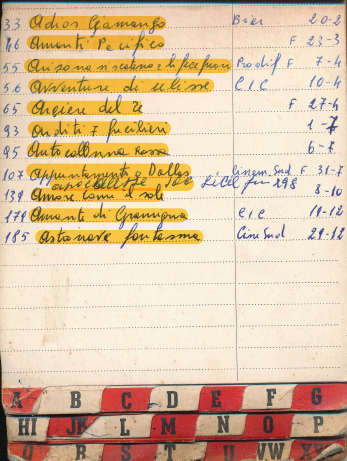 33 Adios Gringo Bier 20-2
46 Amanti Pacifico F 23-3
55 Arizona si scatenò e li fece fuori Prodif F 7-4
56 Avventure di ulisse C.I.C 10-4
65 Arciere del re F 27-4
93 Arditi 7 fucilieri 1-7
95 Autocolonna rossa 6-7
107 Appuntamento a Dallas Cinem. Sud F 31-7
apocalisse Joe
139 Amore come il sole 8-10
179 Amante di Gramigna C.I.C 19-12
185 Astronave fantasma Cine Sud 29-12
A B C D E F G
HI JK L M N O P
Q R S T U VW XY